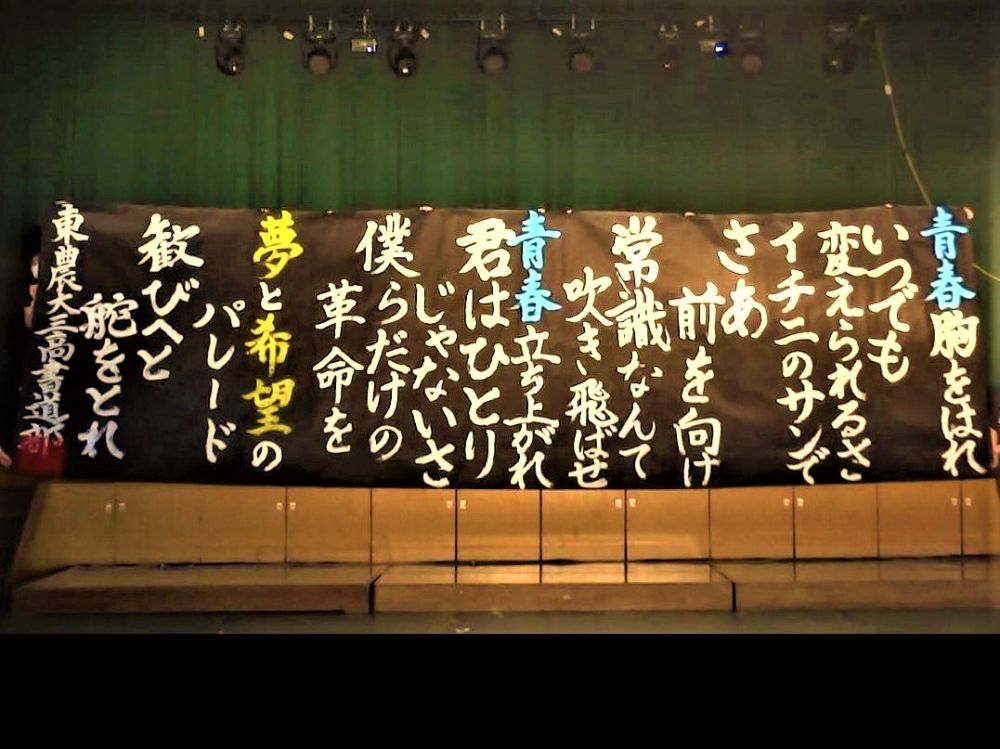 青春胸をはれ
いつでも
変えられるさ
イチニのサンで
さあ
前を向け
常識なんて
吹き飛ばせ
青春立ち上がれ
君はひとり
じゃないさ
僕らだけの
革命を
夢と希望の
パレード
歓びへと
舵をとれ
東農大三高書道部